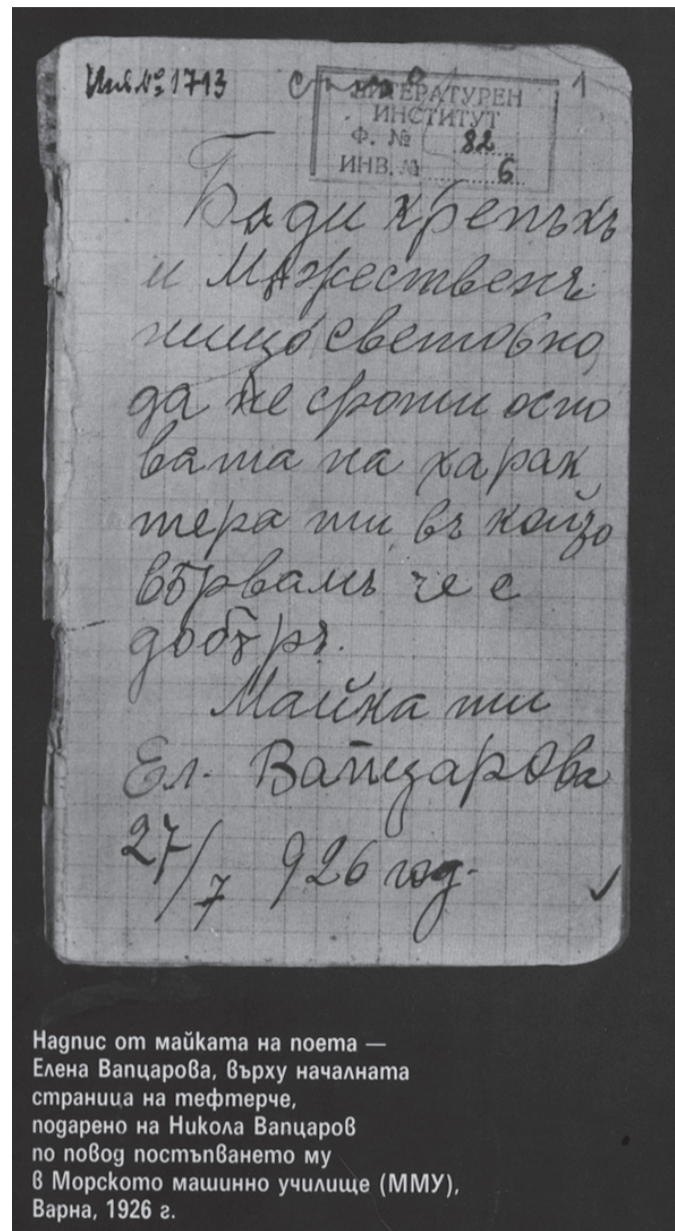 Инв № 1713
1
ЛИТЕРАТУРЕН
ИНСТИТУТ
Ф. № 82
ИНВ. № 6
Бѫди крепъкъ
и мѫжественъ.
нищо световно
да не сроши осно
вата на харак
тера ти въ който
вѣрвамъ че е
добъръ.
Майка ти
Ел. Вапцарова
27/7 926 год.
Надпис от майката на поета —
Елена Вапцарова, върху началната
страница на тефтерче,
подарено на Никола Вапцаров
по повод постъпването му
в Морското машинно училище (ММУ),
Варна, 1926 г.